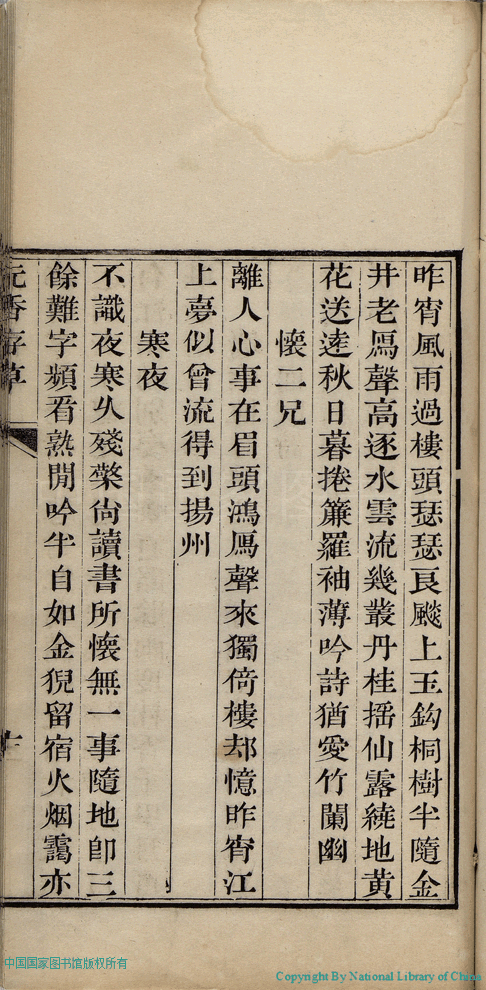 昨宵風雨過樓頭瑟瑟良飈上玉鈎桐樹半隨金
井老鴈聲高逐水雲流幾叢丹桂揺仙露繞地黄
花送逹秋日暮捲簾羅袖薄吟詩猶愛竹闌幽
懷二兄
離人心事在眉頭鴻鴈聲來獨倚樓却憶昨宵江
上夢似曾流得到揚州
寒夜
不識夜寒久殘檠尙讀書所懷無一事隨地卽三
餘難字頻看熟閒吟半自如金猊留宿火烟靄亦
香存草
中国国家图书馆版权所有
Copyright By National Library of China